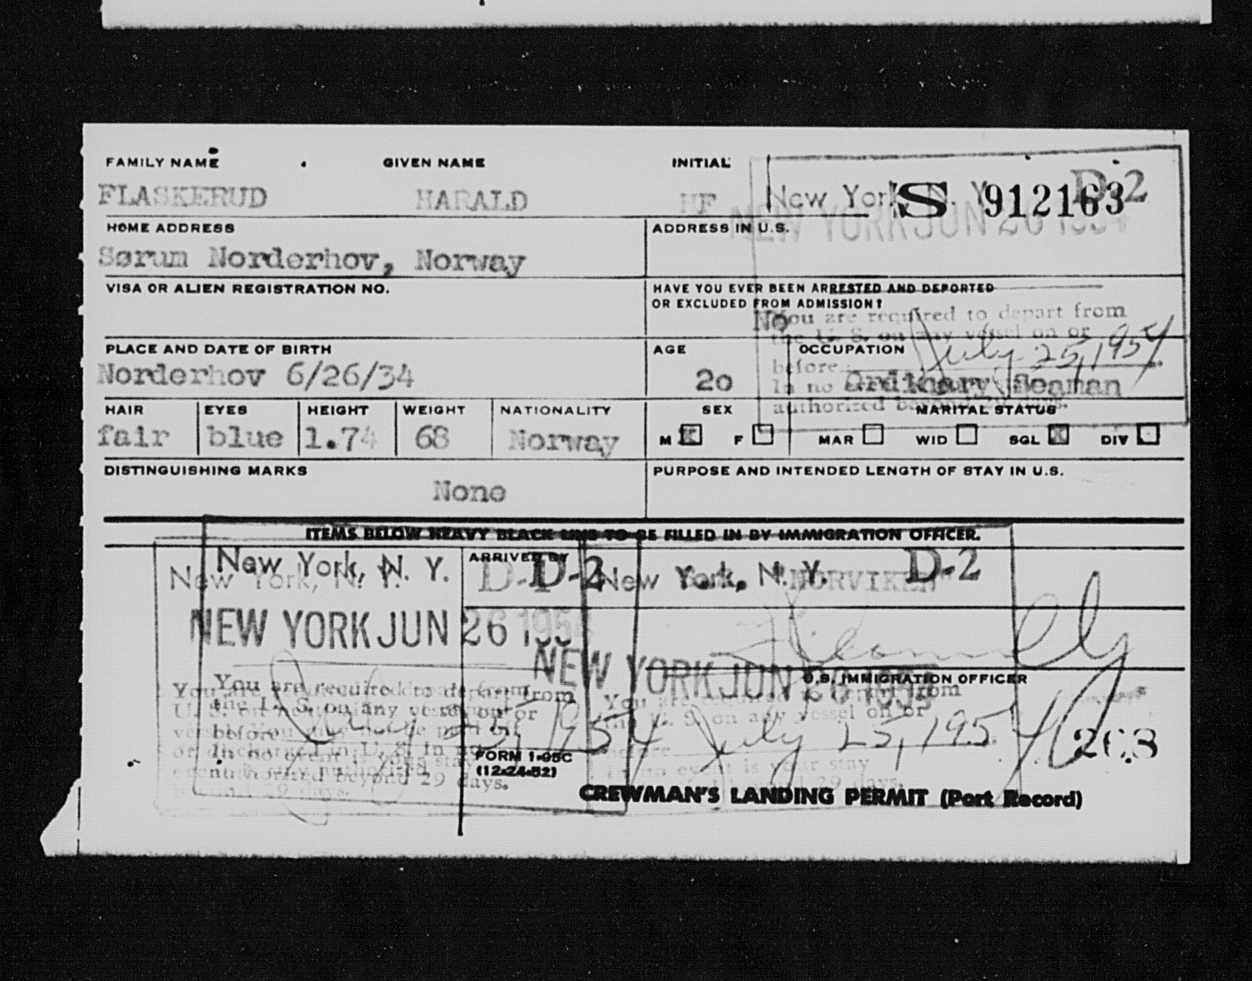 FAMILY NAME GIVEN NAME INITIAL
FLASKERUD HARALD HF New York, N. Y. D-2
S 912163
NEW YORK JUN 26 1954
HOME ADDRESS ADDRESS IN U.S.
Sørum Norderhov, Norway
VISA OR ALIEN REGISTRATION NO. HAVE YOU EVER BEEN ARRESTED AND DEPORTED
OR EXCLUDED FROM ADMISSION?
No
You are required to depart from
the U. S. on any vessel on or
before July 25, 1954
In no
authorized beyond 29 days.
PLACE AND DATE OF BIRTH AGE OCCUPATION
Norderhov 6/26/34 20 Ordinary Seaman
HAIR EYES HEIGHT WEIGHT NATIONALITY SEX MARITAL STATUS
fair blue 1.74 68 Norway M X F MAR WID SGL X DIV
DISTINGUISHING MARKS PURPOSE AND INTENDED LENGTH OF STAY IN U.S.
None
ITEMS BELOW HEAVY BLACK LINE TO BE FILLED IN BY IMMIGRATION OFFICER.
ARRIVED BY
New York, N. Y. D-2 New York, N. Y. D-2
New York, N. Y. D-2 NORVIKEN
NEW YORK JUN 26 1954
NEW YORK JUN 26 1954
U.S. IMMIGRATION OFFICER
You are required to depart from
the U. S. on any vessel on or
before July 25, 1954
In no event is your stay
authorized beyond 29 days.
You are required to depart from
the U. S. on any vessel on or
before July 25, 1954
In no event is your stay
beyond 29 days.
268
FORM I-95C
(12-24-52)
CREWMAN'S LANDING PERMIT (Port Record)